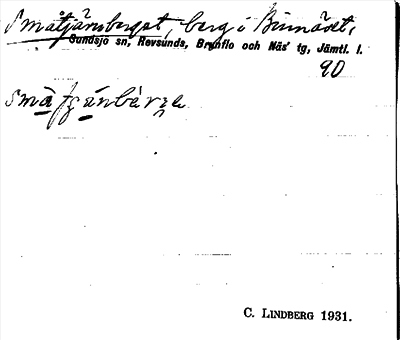 Småtjärnsberget, berg i Binnäset,
Sundsjö sn, Revsunds, Brunflo och Näs' tg, Jämtl. l.
90
C. LINDBERG 1931.